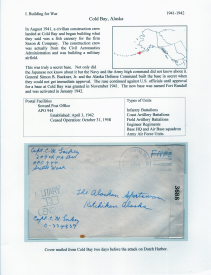 I. Building for War
1941-1942
Cold Bay, Alaska
In August 1941, a civilian construction crew
landed at Cold Bay and began building what
they said was a fish cannery for the firm
Saxon & Company. The construction crew
was actually from the Civil Aeronautics
Administration and was building a military
airfield.
This was truly a secret base. Not only did
the Japanese not know about it but the Navy and the Army high command did not know about it.
General Simon B. Buckner, Jr. and the Alaska Defense Command built the base in secret when
they could not get immediate approval. The ruse continued against U.S. officials until approval
for a base at Cold Bay was granted in November 1941. The new base was named Fort Randall
and was activated in January 1942.
Postal Facilities
Seward Post Office
APO 944
Established: April 2, 1942
Ceased Operation: October 31, 1946
Types of Units
Infantry Battalions
Coast Artillery Battalions
Field Artillery Battalions
Engineer Regiments
Base HQ and Air Base squadrons
Army Air Force Units
Capt C. W.
Seattle Wash
Free
The Alaska Sportsman
Ketchikan Alaska
Capt C. W.
Cover mailed from Cold Bay two days before the attack on Dutch Harbor.